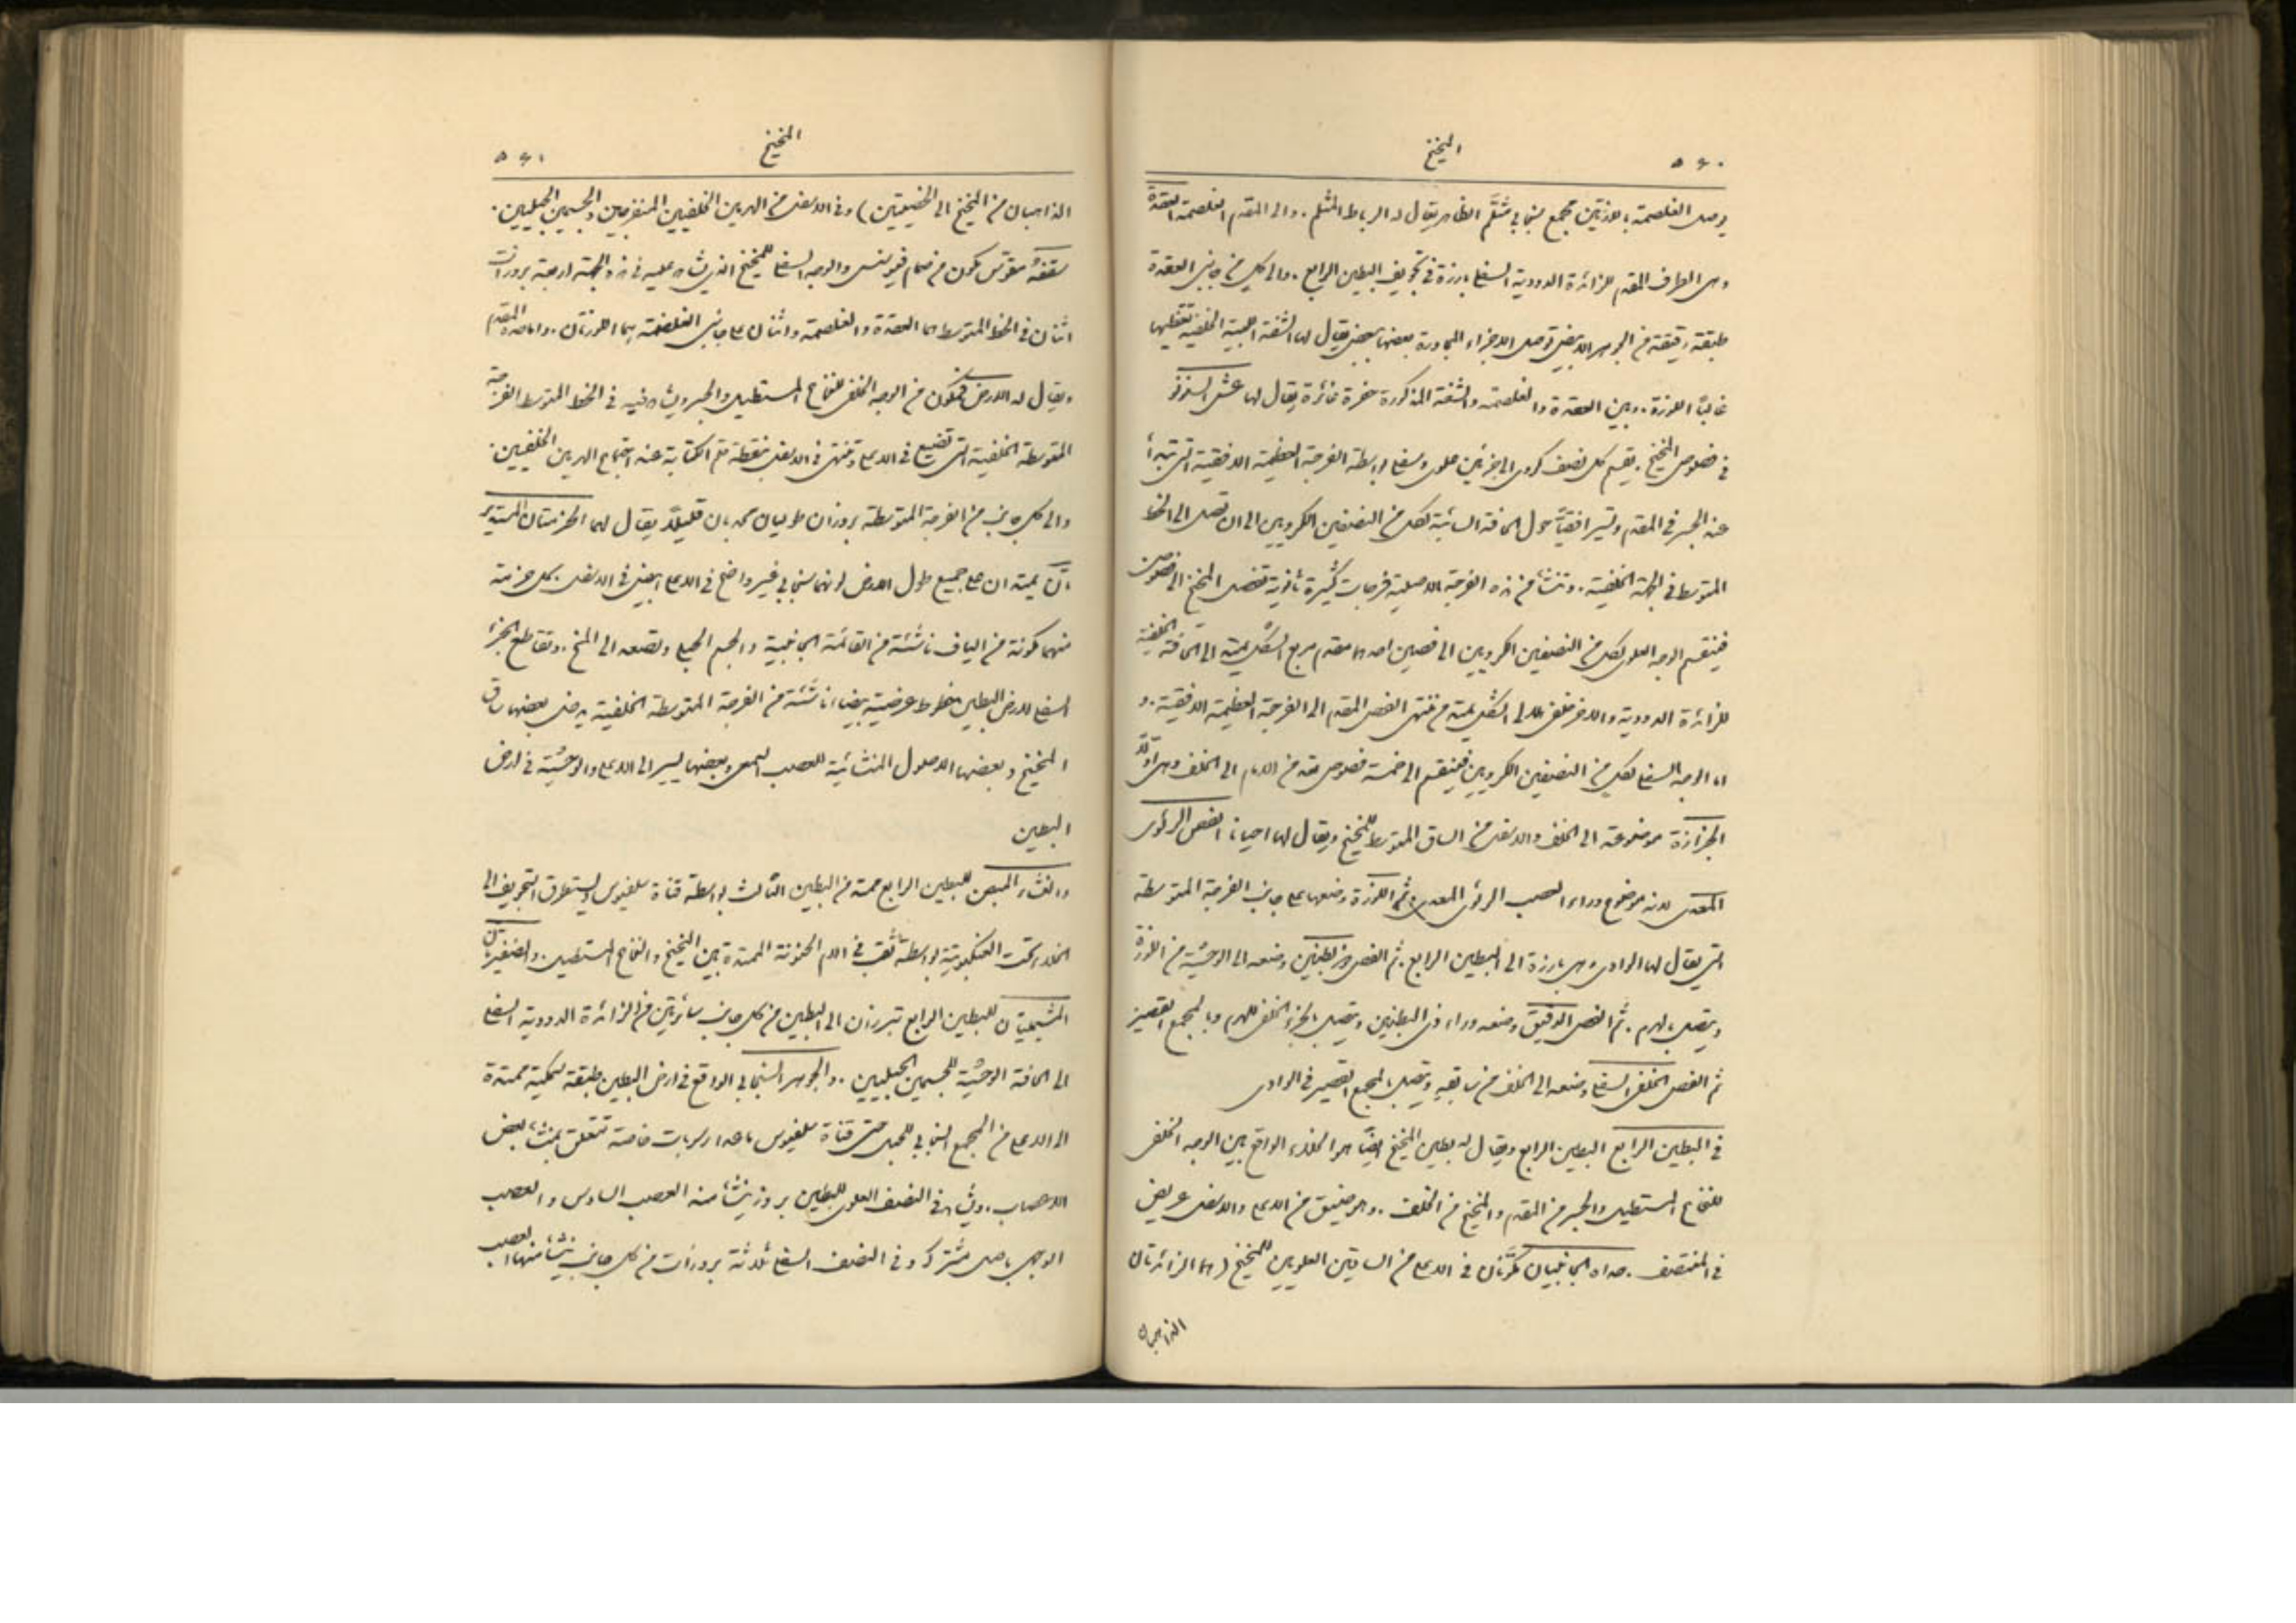 ٥٤٠
المخيخ
يوصل الغلصمة باللوزتين مجمع سنجابي مثلَّم الظاهر يقال له الرباط المثلم . والى المقدم الغلصمة العقدة
وهى الطرف المقدم للزائدة الدودية السفلى بارزة فى تجويف البطين الرابع . والى كل من جانبى العقدة
طبقة رقيقة من الجوهر الابيض توصل الاجزاء المجاورة بعضها ببعض يقال لها الشفة اللبية الخلفية تغطيها
غالبًا اللوزة . وبين العقدة والغلصمة والشفة المذكورة حفرة غائرة يقال لها عش السنونو
فى فصوص المخيخ . يقسم كل نصف كروى الى جزئين علوى وسفلى بواسطة الفرجة العظيمة الافقية التى تبتدأ
عند الجسر فى المقدم وتسير افقيًّا حول الحافة السائبة لكل من النصفين الكرويين الى ان تصل الى الخط
المتوسط فى الجهة الخلفية . وتنشأ من هذه الفرجة الاصلية فرجات كثيرة ثانوية تفصل المخيخ الى فصوص
فينقسم الوجه العلوى لكل من النصفين الكرويين الى فصين احدهما مقدم مربع الشكل يمتد الى الحافة الخلفية
للزائدة الدودية والاخر خلفى هلالى الشكل يمتد من منتهى الفص المقدم الى الفرجة العظيمة الافقية . و
اما الوجه السفلى لكل من النصفين الكرويين فينقسم الى خمسة فصوص تعد من الامام الى الخلف وهى اولًا
الجزازة موضوعة الى الخلف والاسفل من الساق المتوسط للمخيخ ويقال لها احيانا الفص الرئوى
المعدى لانه موضوع وراء العصب الرئوى المعدى ثم اللوزة وضعها على جانب الفرجة المتوسطة
التى يقال لها الوادى وهى بارزة الى البطين الرابع . ثم الفص ذو بطنين وضعه الى الوحشية من اللوزة
ويتصل بالهرم . ثم الفص الدقيق وضعه وراء ذى البطنين ويتصل بالجزء الخلفى للهرم وبالمجمع القصير
ثم الفص الخلفى السفلى وضعه الى الخلف من سابقه ويتصل بالمجمع القصير فى الوادى
فى البطين الرابع البطين الرابع ويقال له بطين المخيخ ايضًا هو الخلاء الواقع بين الوجه الخلفى
للنخاع المستطيل والجسر من المقدم والمخيخ من الخلف . وهو ضيق من الاعلى والاسفل عريض
فى المنتصف . جداراه الجانبيان مكوّنان فى الاعلى من الساقين العلويين للمخيخ ( هما الزائدتان
الذاهبتان
المخيخ
٥٤١
الذاهبتان من المخيخ الى الخصيتين ) وفى الاسفل من الهرمين الخلفيين المنفرجين والجسمين الحبليين .
سقفهُ مقوّس مكوّن من صمام فيوسنس والوجه السفلى للمخيخ الذى يشاهد عليه فى هذه الجهة اربعة بروزات
اثنان فى الخط المتوسط هما العقدة والغلصمة واثنان على جانبى الغلصمة هما اللوزتان . واما جداره المقدم
ويقال له الارض فمكون من الوجه الخلفى للنخاع المستطيل والجسر ويشاهد فيه فى الخط المتوسط الفرجة
المتوسطة الخلفية التى تضيع فى الاعلى وتنتهى فى الاسفل بنقطة قلم الكتابة عند اجتماع الهرمين الخلفيين .
والى كل جانب من الفرجة المتوسطة بروزان طوليان محدبان قليلًا يقال لهما الحزمتان المستدير
تان يمتدان على جميع طول الارض لونهما سنجابي غير واضح فى الاعلى ابيض فى الاسفل . كل حزمة
منهما مكونة من الياف ناشئة من القائمة الجانبية والجسم الحبلى وتصعد الى المخ . وتقاطع الجزء
السفلى لارض البطين خطوط عرضية بيضاء ناشئة من الفرجة المتوسطة الخلفية يدخل بعضها ساق
المخيخ وبعضها الاصول المنشائية للعصب السمعى وبعضها يسير الى الاعلى والوحشية فى ارض
البطين
والغشاء المبطن للبطين الرابع ممتد من البطين الثالث بواسطة قناة سلفيوس ويستطرق التجويف الى
الخلاء تحت العنكبوتية بواسطة ثقب فى الام الحنونة الممتدة بين المخيخ والنخاع المستطيل . والضفيرتان
المشيميتان للبطين الرابع تبرزان الى البطين من كل جانب سائرتين من الزائدة الدودية السفلى
الى الحافة الوحشية للجسمين الحبليين . والجوهر السنجابي الواقع فى ارض البطين طبقة سميكة ممتدة
الى الاعلى من المجمع السنجابي للحبل حتى قناة سلفيوس ماعدا رسوبات خاصة تتعلق بمنشاء بعض
الاعصاب . ويشاهد فى النصف العلوى للبطين بروز ينشاء منه العصب السادس والعصب
الوجهى باصل مشترك وفى النصف السفلى ثلاثة بروزات من كل جانب ينشاء منها العصب